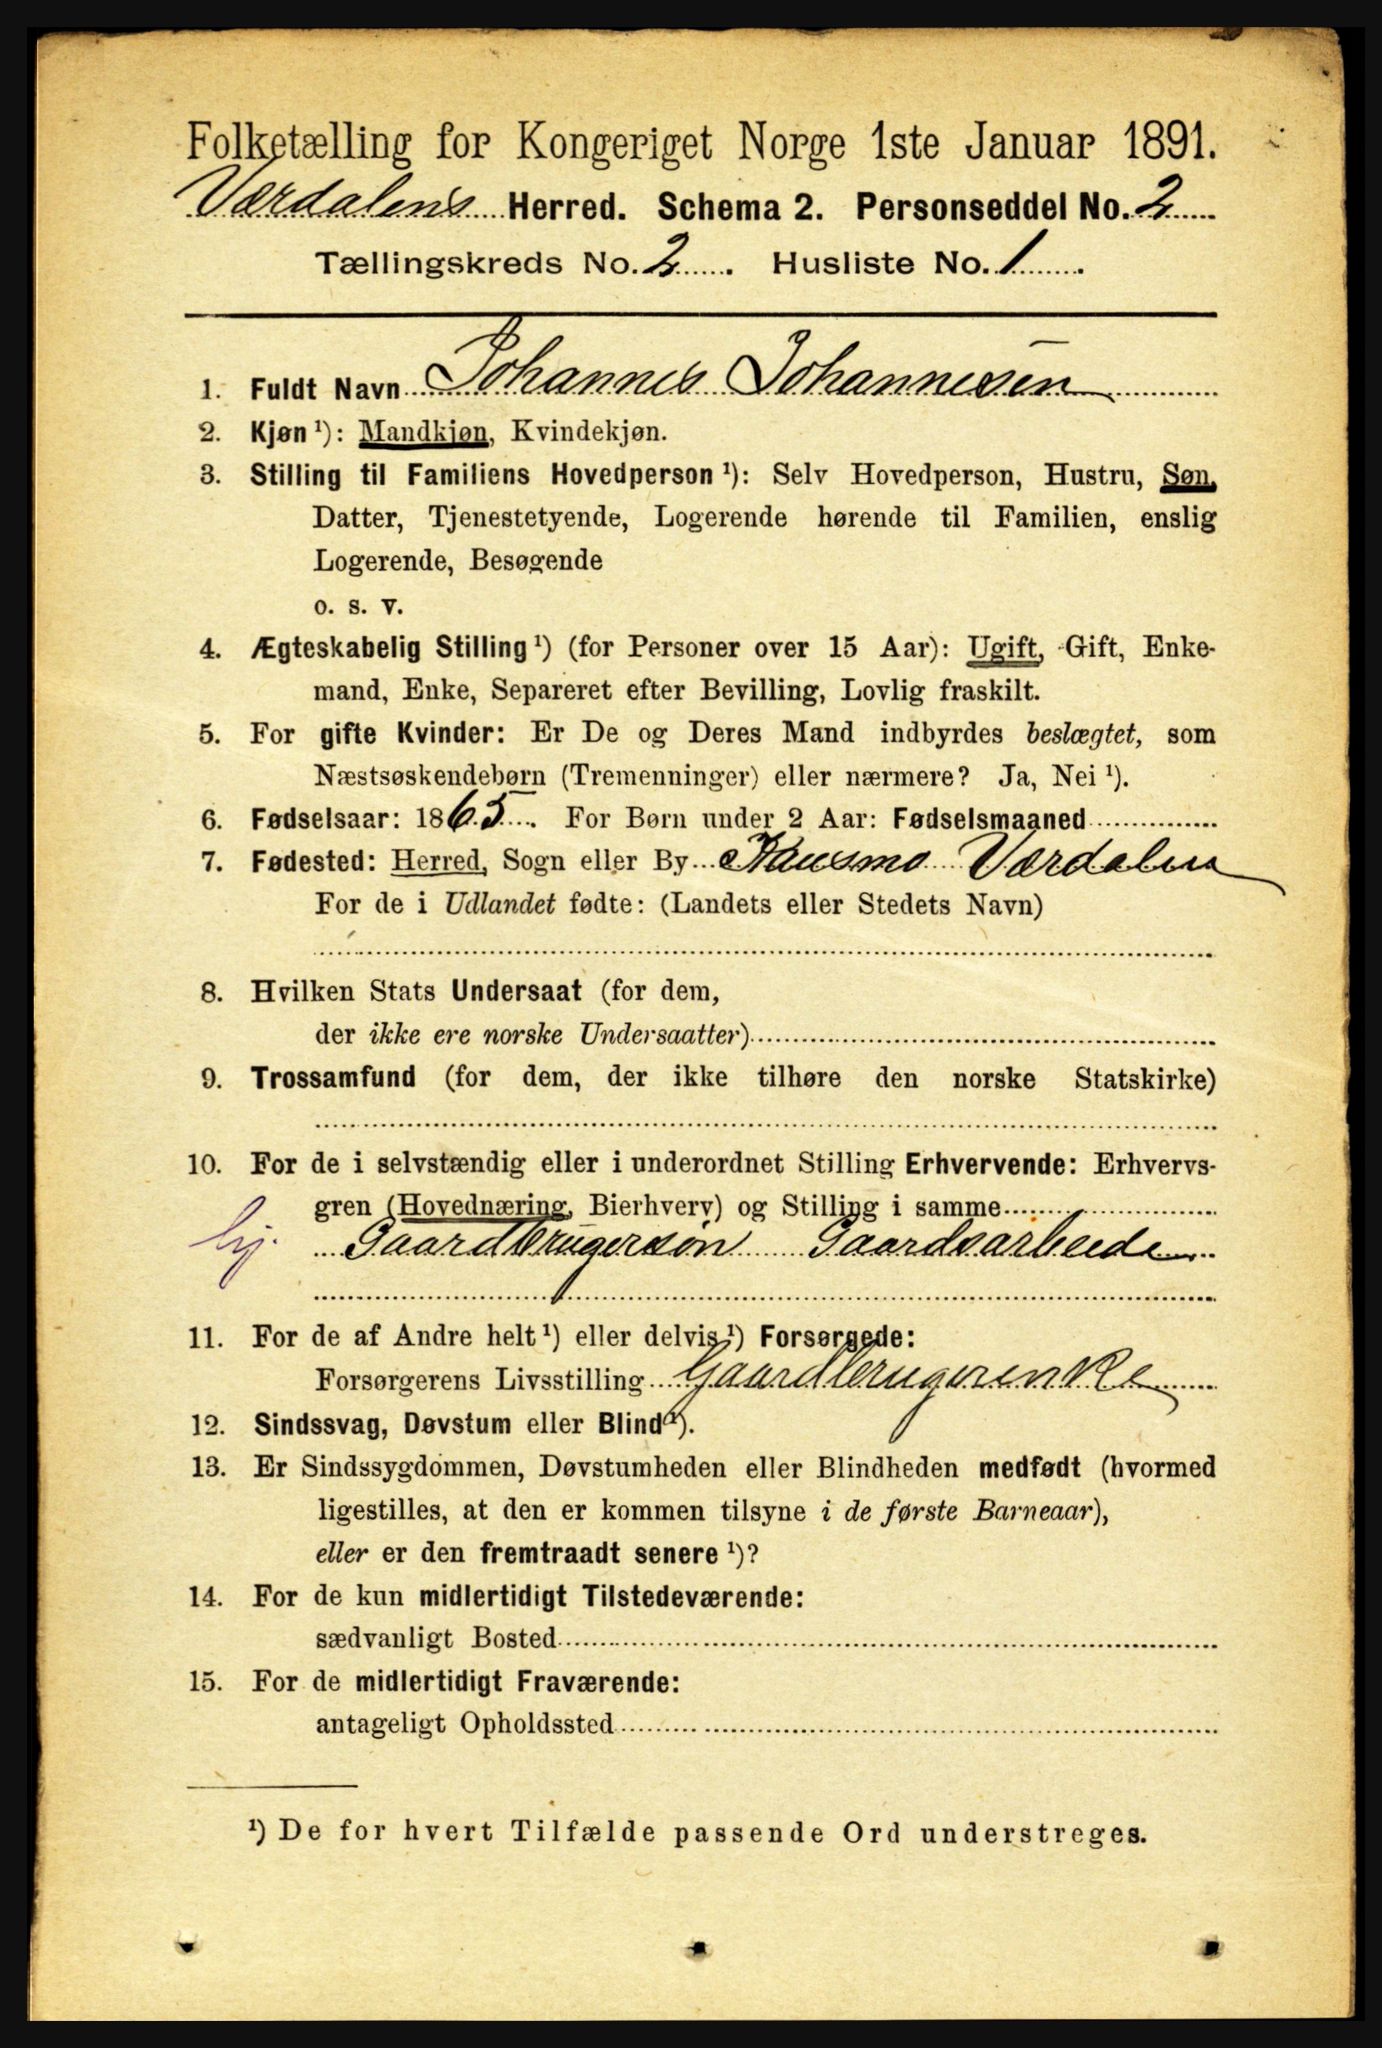 Folketælling for Kongeriget Norge 1ste Januar 1891.
Værdalens Herred. Schema 2. Personseddel No. 2
Tællingskreds No. 2. Husliste No. 1
1. Fuldt Navn Johannes Johannesen
2. Kjøn ¹): Mandkjøn, Kvindekjøn.
3. Stilling til Familiens Hovedperson ¹): Selv Hovedperson, Hustru, Søn,
Datter, Tjenestetyende, Logerende hørende til Familien, enslig
Logerende, Besøgende
o. s. v.
4. Ægteskabelig Stilling ¹) (for Personer over 15 Aar): Ugift, Gift, Enke-
mand, Enke, Separeret efter Bevilling, Lovlig fraskilt.
5. For gifte Kvinder: Er De og Deres Mand indbyrdes beslægtet, som
Næstsøskendebørn (Tremenninger) eller nærmere? Ja, Nei ¹).
6. Fødselsaar: 1865. For Børn under 2 Aar: Fødselsmaaned
7. Fødested: Herred, Sogn eller By Kausmo Værdalen
For de i Udlandet fødte: (Landets eller Stedets Navn)
8. Hvilken Stats Undersaat (for dem,
der ikke ere norske Undersaatter)
9. Trossamfund (for dem, der ikke tilhøre den norske Statskirke)
10. For de i selvstændig eller i underordnet Stilling Erhvervende: Erhvervs-
gren (Hovednæring, Bierhverv) og Stilling i samme
hj. Gaardbrugersøn Gaardsarbeide
11. For de af Andre helt ¹) eller delvis ¹) Forsørgede:
Forsørgerens Livsstilling Gaardbrugerenke
12. Sindssvag, Døvstum eller Blind ¹).
13. Er Sindssygdommen, Døvstumheden eller Blindheden medfødt (hvormed
ligestilles, at den er kommen tilsyne i de første Barneaar),
eller er den fremtraadt senere ¹)?
14. For de kun midlertidigt Tilstedeværende:
sædvanligt Bosted
15. For de midlertidigt Fraværende:
antageligt Opholdssted
¹) De for hvert Tilfælde passende Ord understreges.